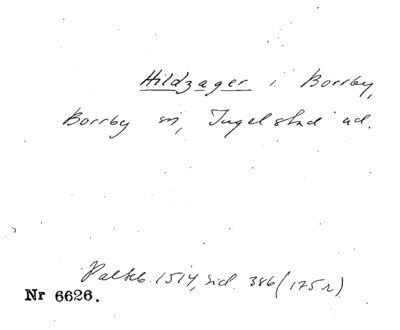 Hildzager i Borrby,
Borrby sn, Ingelstad hd.
Palteb. 1514, sid. 386 (175 r)
Nr 6626.